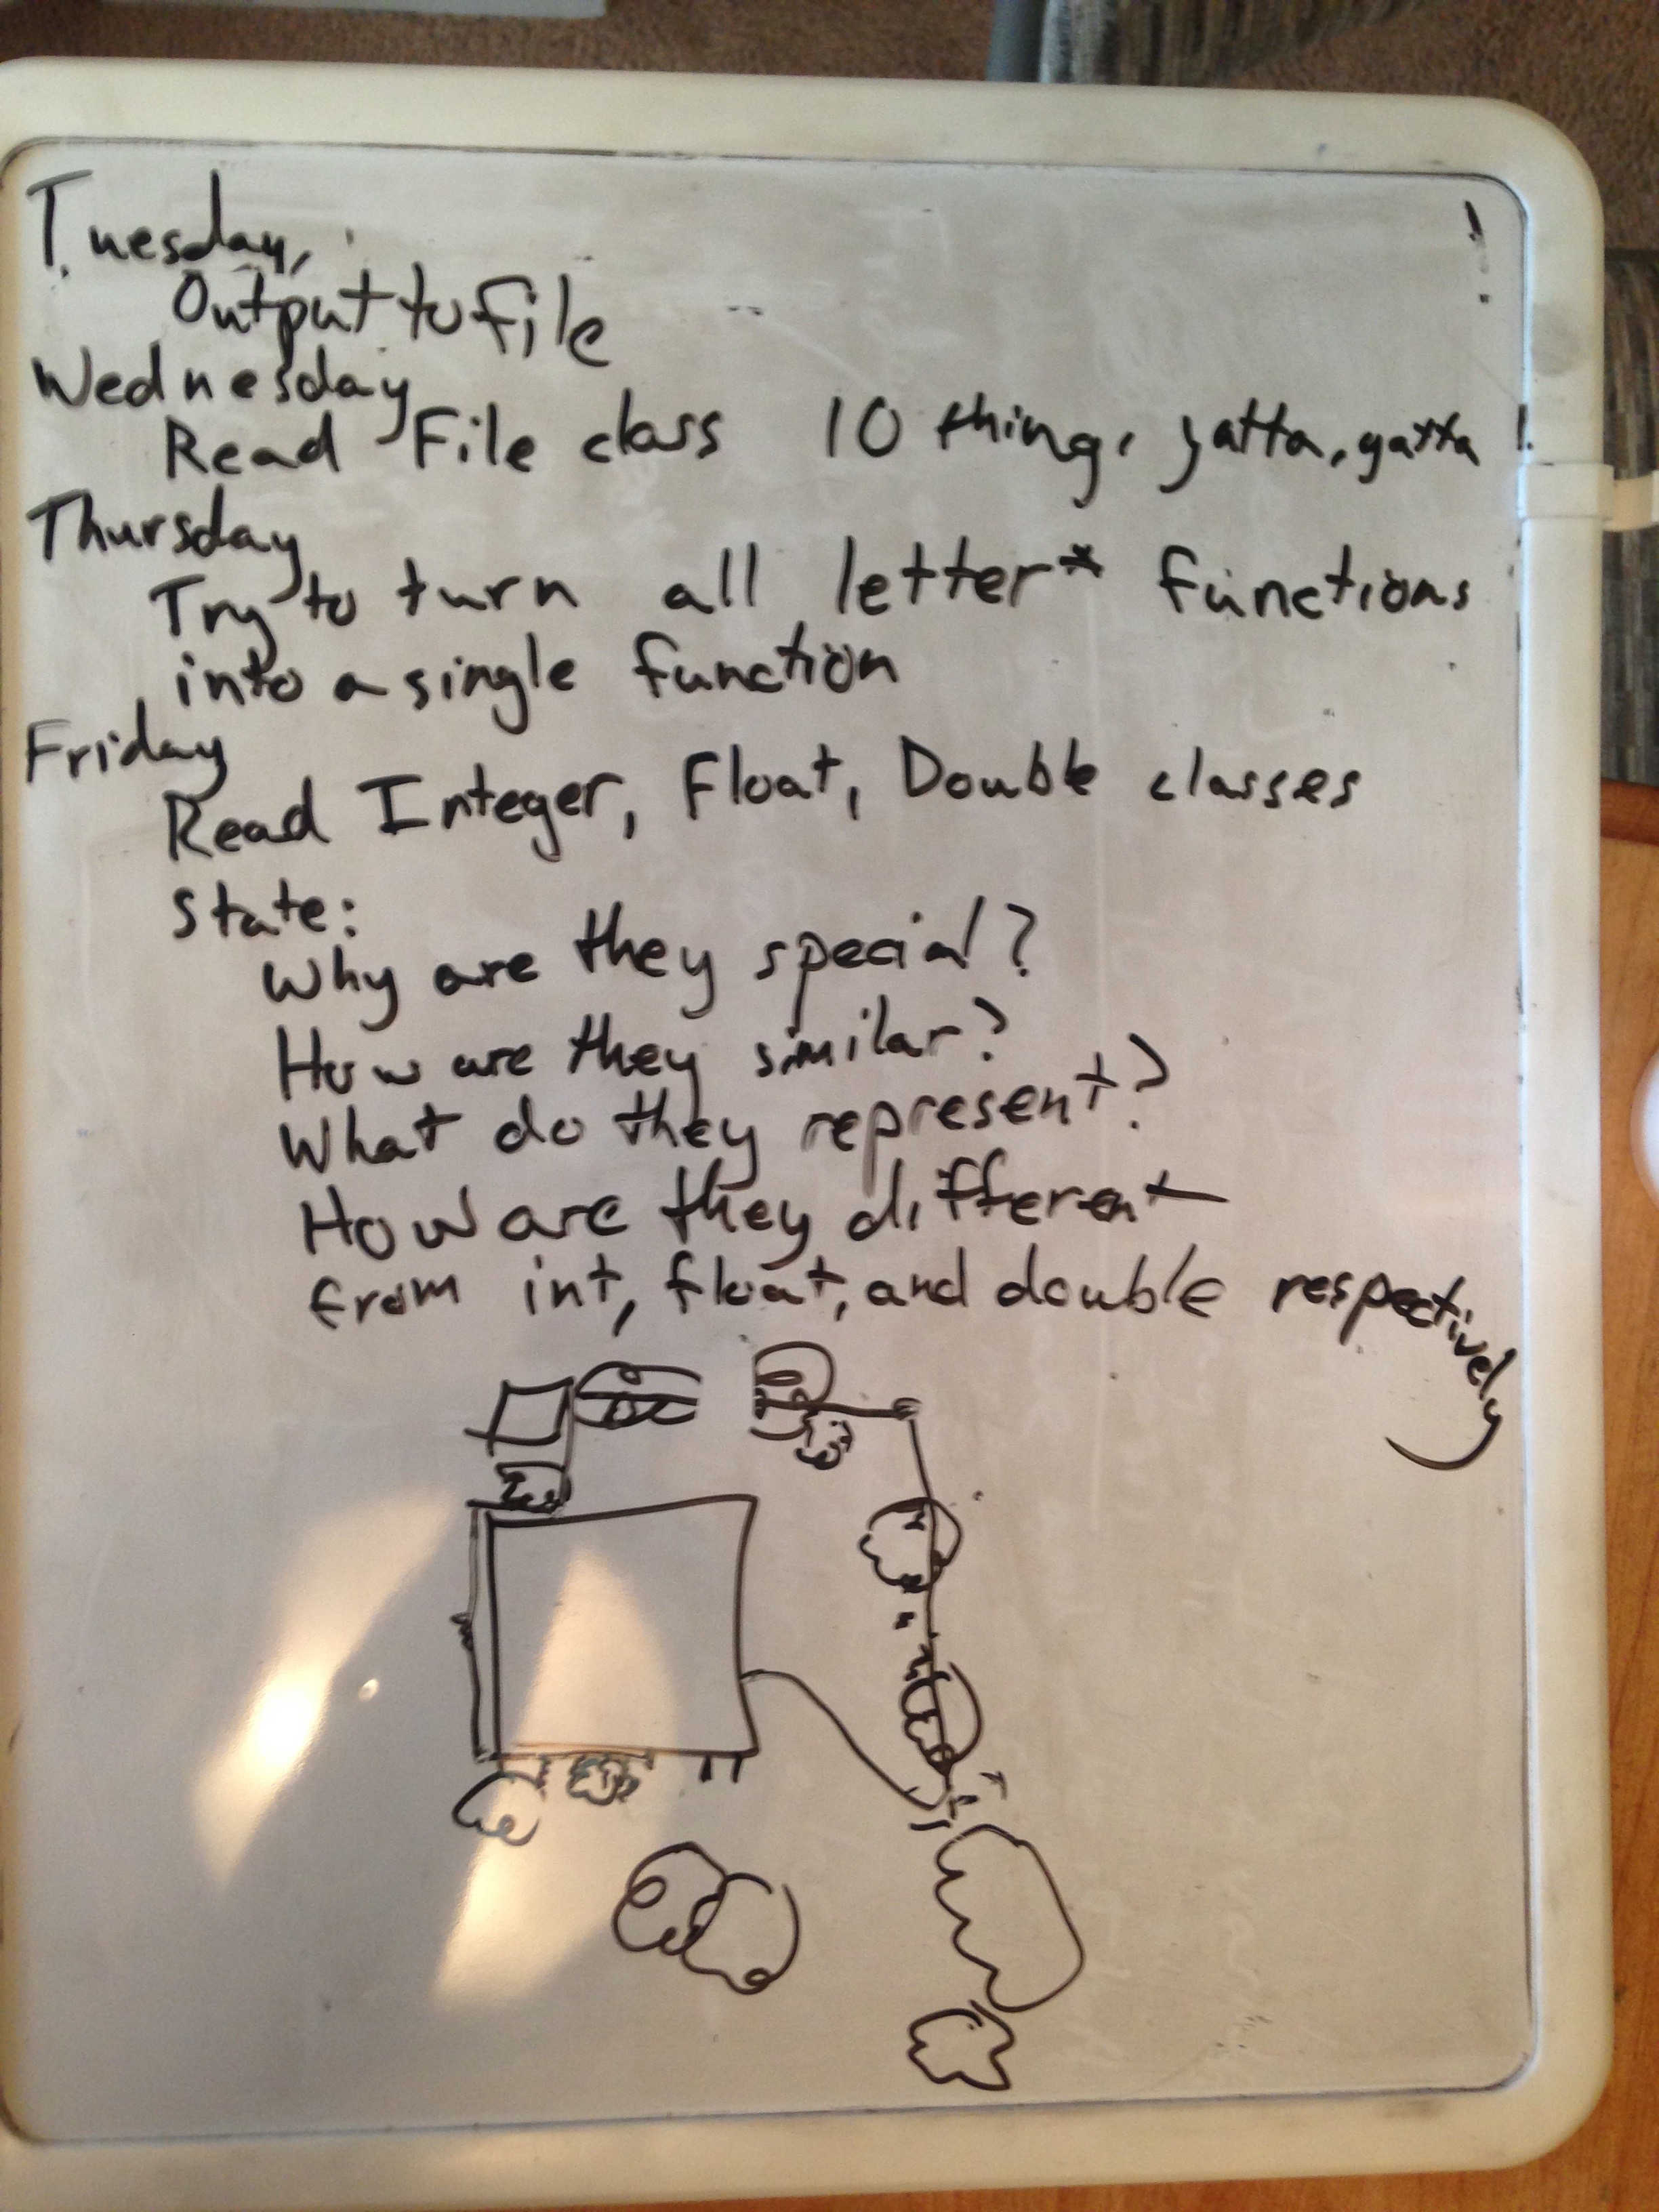 Tuesday,
Output to file
Wednesday
Read File class 10 thing, yatta, yatta !
Thursday
Try to turn all letter* functions
into a single function
Friday
Read Integer, Float, Double classes
State:
Why are they special?
How are they similar?
What do they represent?
How are they different
from int, float, and double respectively